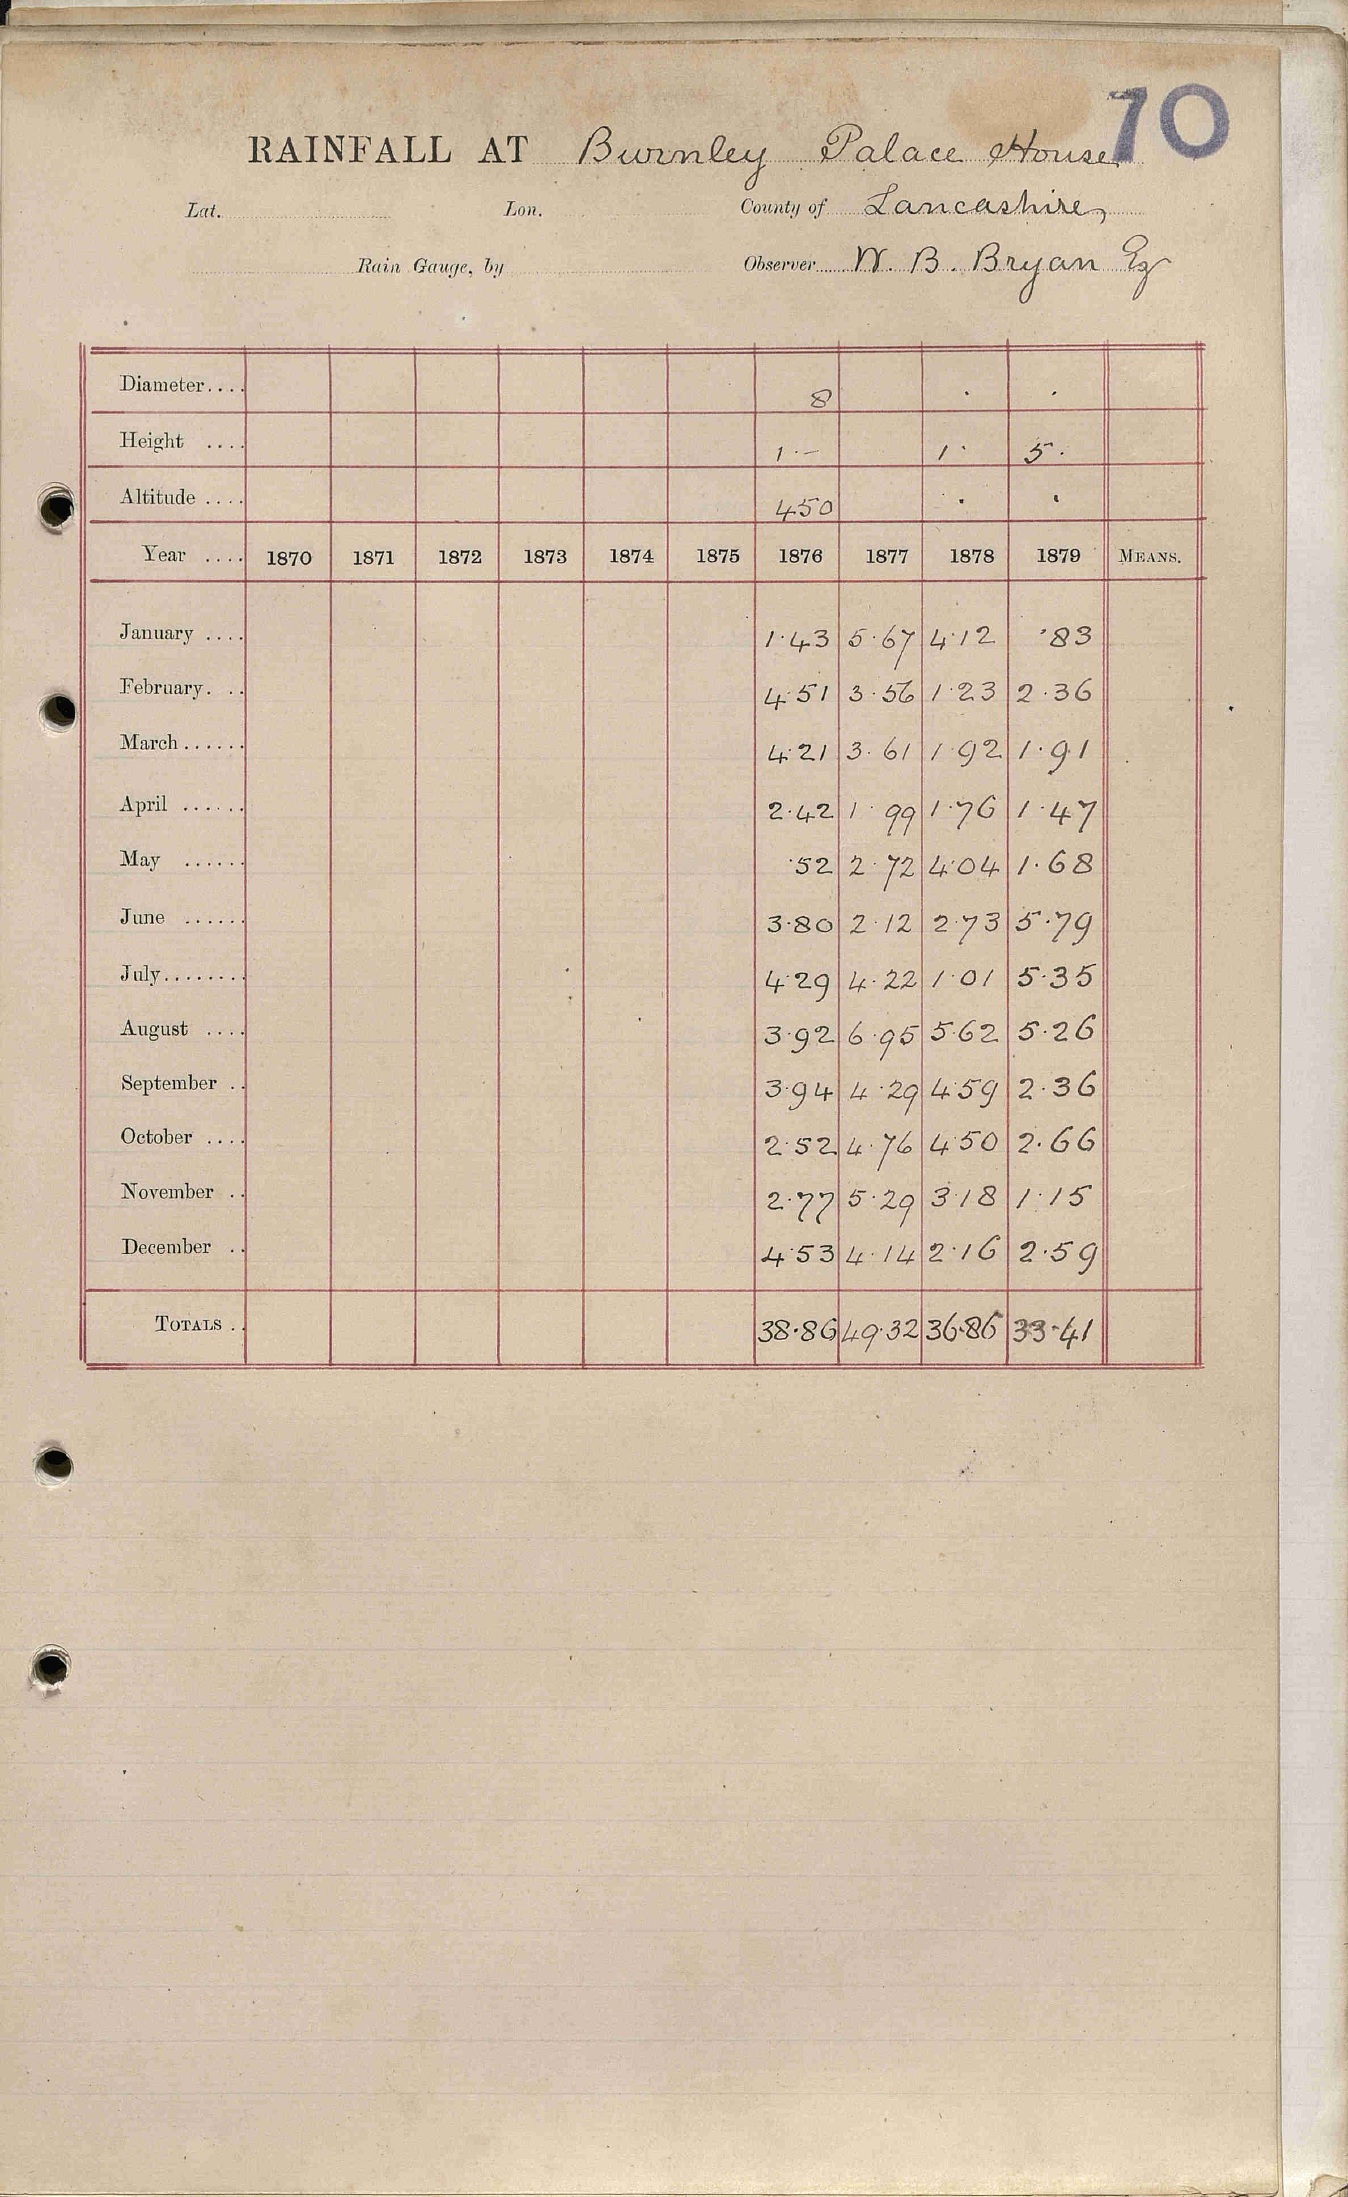 70
RAINFALL AT Burnley Palace House
Lat. Lon. County of Lancashire,
Rain Gauge, by Observer W. B. Bryan Esq
Diameter.... 8 · ·
Height .... 1·– 1· 5·
Altitude .... 450 · ·
Year .... 1870 1871 1872 1873 1874 1875 1876 1877 1878 1879 MEANS.
January .... 1·43 5·67 4·12 ·83
February. .. 4·51 3·56 1·23 2·36
March...... 4·21 3·61 1·92 1·91
April ...... 2·42 1·99 1·76 1·47
May ...... ·52 2·72 4·04 1·68
June ...... 3·80 2·12 2·73 5·79
July........ 4·29 4·22 1·01 5·35
August .... 3·92 6·95 5·62 5·26
September .. 3·94 4·29 4·59 2·36
October .... 2·52 4·76 4·50 2·66
November .. 2·77 5·29 3·18 1·15
December .. 4·53 4·14 2·16 2·59
TOTALS .. 38·86 49·32 36·86 33·41